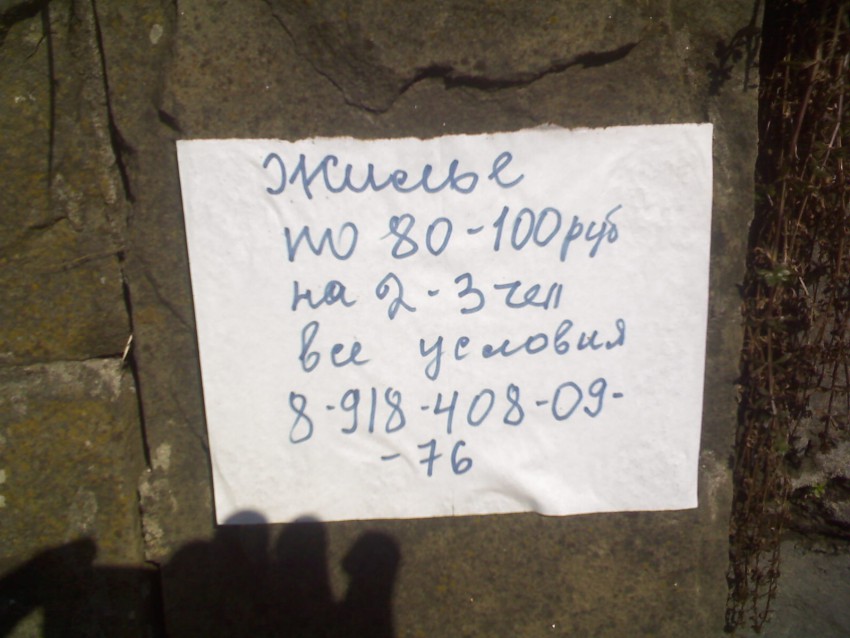 Жилье
по 80-100 руб
на 2-3 чел
все условия
8-918-408-09-
-76